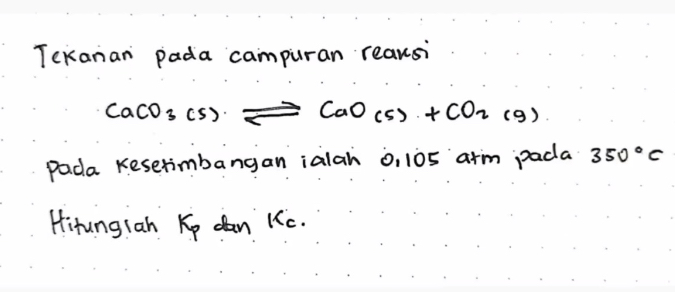 Tekanan pada campuran reaksi
CaCO3 (s) ⇌ CaO (s) + CO2 (g)
pada kesetimbangan ialah 0,105 atm pada 350°C
Hitunglah Kp dan Kc.